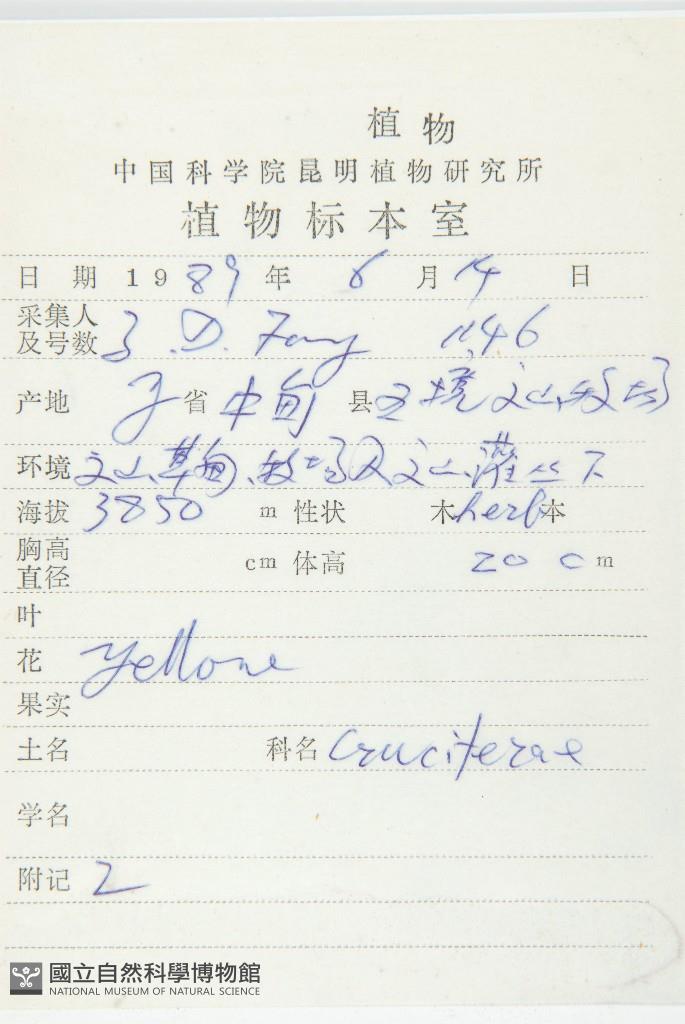 植物
中国科学院昆明植物研究所
植物标本室
日 期 1989 年 6 月 14 日
采集人
及号数 D. Fang 1146
产地 省 中甸 县
环境 草甸、牧场及 灌丛下
海拔 3850 m 性状 木 herb 本
胸高
直径 cm 体高 20 cm
叶
花 Yellow
果实
土名 科名 Cruciferae
学名
附记 2
國立自然科學博物館
NATIONAL MUSEUM OF NATURAL SCIENCE